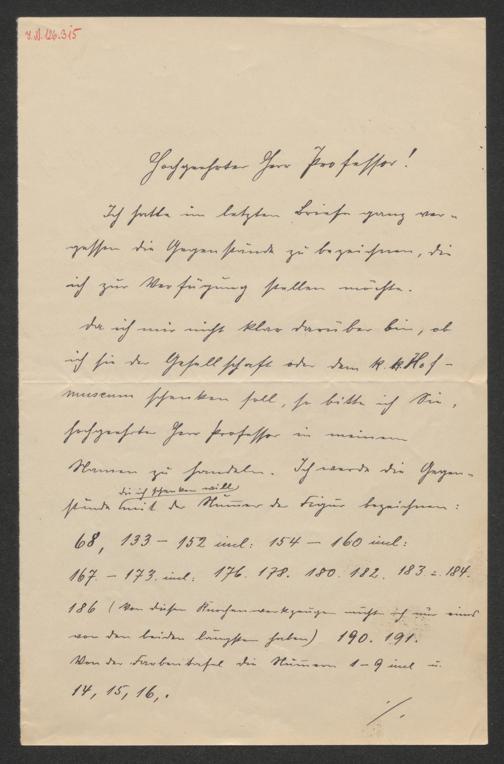 I. N. 126.315
Hochgeehrter Herr Professor!
Ich hatte im letzten Briefe ganz ver-
gessen die Gegenstände zu bezeichnen, die
ich zur Verfügung stellen möchte.
Da ich mir nicht klar darüber bin, ob
ich sie der Gesellschaft oder dem k. k. Hof-
museum schenken soll, so bitte ich Sie,
hochgeehrter Herr Professor in meinem
Namen zu handeln. Ich werde die Gegen-
die ich schenken will
stände mit der Nummer der Figur bezeichnen:
68, 133 – 152 incl: 154 – 160 incl:
167 – 173. incl: 176. 178. 180. 182. 183. 184.
186 (Von diesen Knochenwerkzeugen ich nur eines
von den beiden längsten haben) 190. 191.
Von der Farbentafel die Nummern 1–9 incl u.
14, 15, 16,.
./.